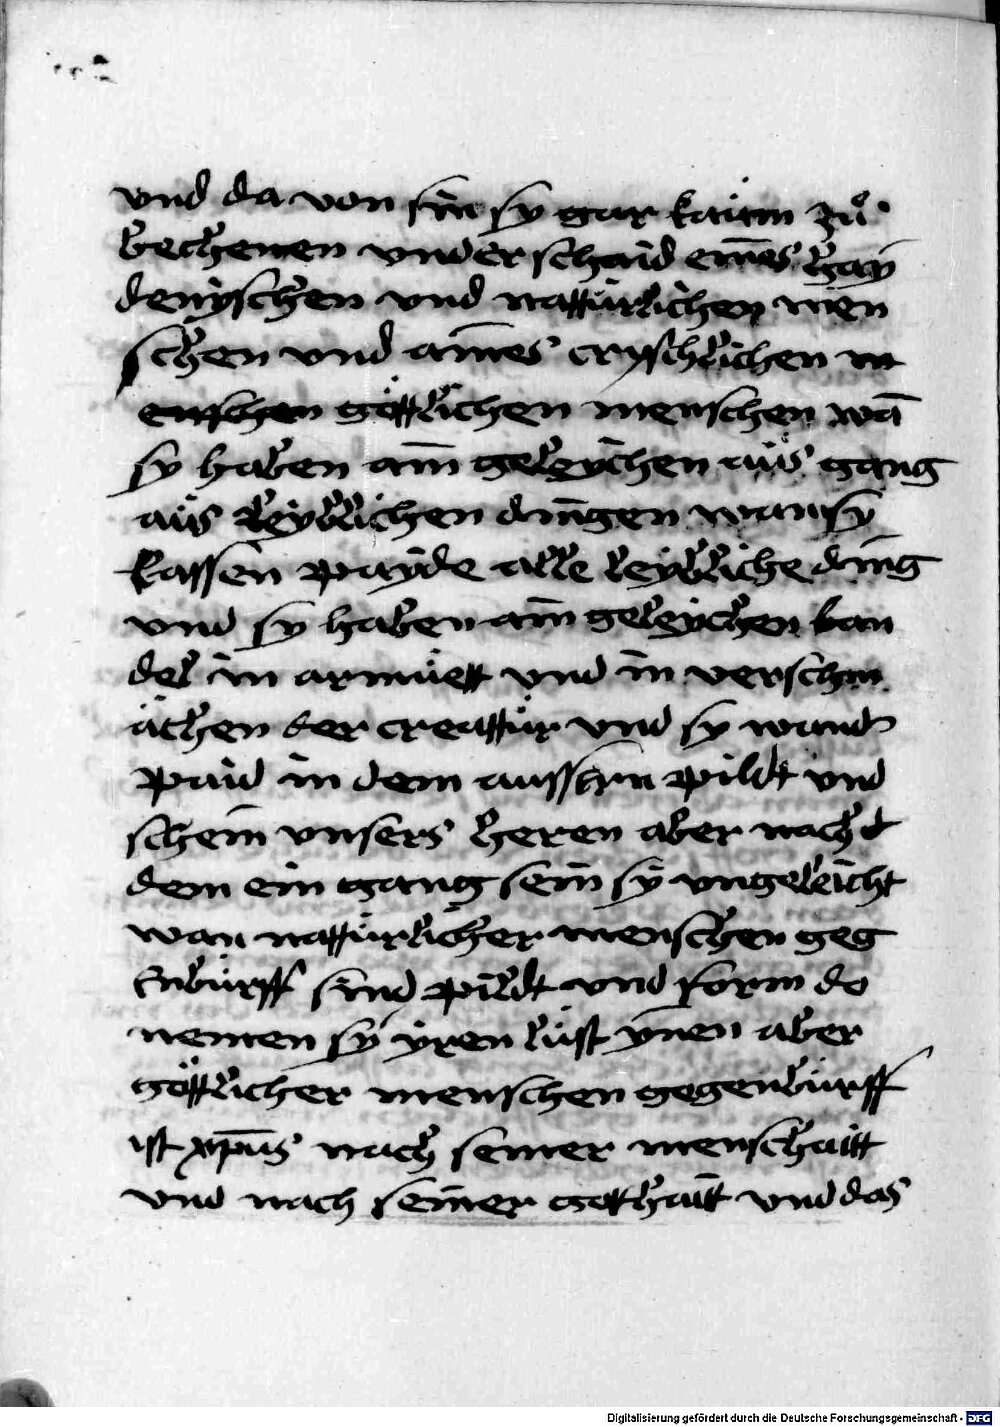 vnd da von sin sy gar kaim zů
bechenen vnderschaid eines hay
denyschen vnd nattürlichen men
schen vnd aines cryschlichen m
enschen göttlichen menschen wā
sy haben ain geleychen aüs gang
aüs leyblichen dingen wan sy
lassen payde alle leybliche ding
vnd sy haben ain geleychen ban
del in armüett vnd in verschm
ächen der creattür vnd sy wand
paid in dem aussern pildt vnd
schein vnsers heren aber nach d
dem ein gang sein sy vngeleicht
wan nattürlicher menschen geg
enbürff sind pildt vnd form do
nemen sy yren lüst ynen aber
göttlicher menschen gegenbürff
ist xp̄us nach seiner menschaitt
vnd nach seiner gotthaitt vnd das
Digitalisierung gefördert durch die Deutsche Forschungsgemeinschaft - DFG